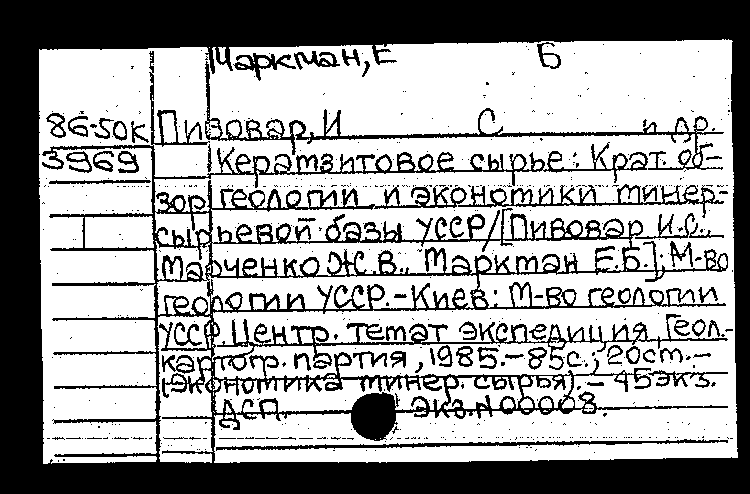 Маркман, Е Б
86-50к Пивовар, И С и др.
3969 Керамзитовое сырье: Крат. об-
зор геологии и экономики минер.-
сырьевой базы УССР/[Пивовар И.С.,
Марченко Ж.В., Маркман Е.Б.]; М-во
геологии УССР.-Киев: М-во геологии
УССР. Центр. темат экспедиция, Геол.-
картогр. партия, 1985.-85с.; 20см.-
(Экономика минер. сырья).-45экз.
ДСП. Экз.N 00008.